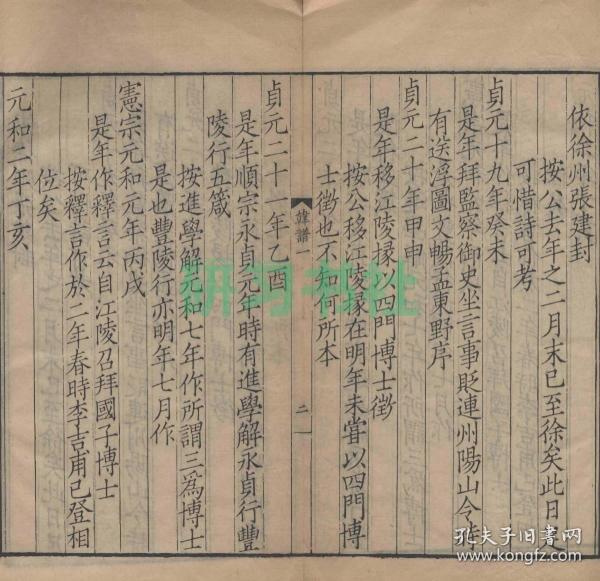 依徐州張建封
按公去年之二月末已至徐矣此日足
可惜詩可考
貞元十九年癸未
是年拜監察御史坐言事貶連州陽山令
有送浮圖文暢孟東野序
貞元二十年甲申
是年移江陵掾以四門博士徵
按公移江陵掾在明年未嘗以四門博
士徵也不知何所本
韓譜一
二
貞元二十一年乙酉
是年順宗永貞元年時有進學解永貞行豐
陵行五箴
按進學解元和七年作所謂三為博士
是也豐陵行亦明年七月作
憲宗元和元年丙戌
是年作釋言云自江陵召拜國子博士
按釋言作於二年春時李吉甫已登相
位矣
元和二年丁亥
研习书社
孔夫子旧书网
www.kongfz.com